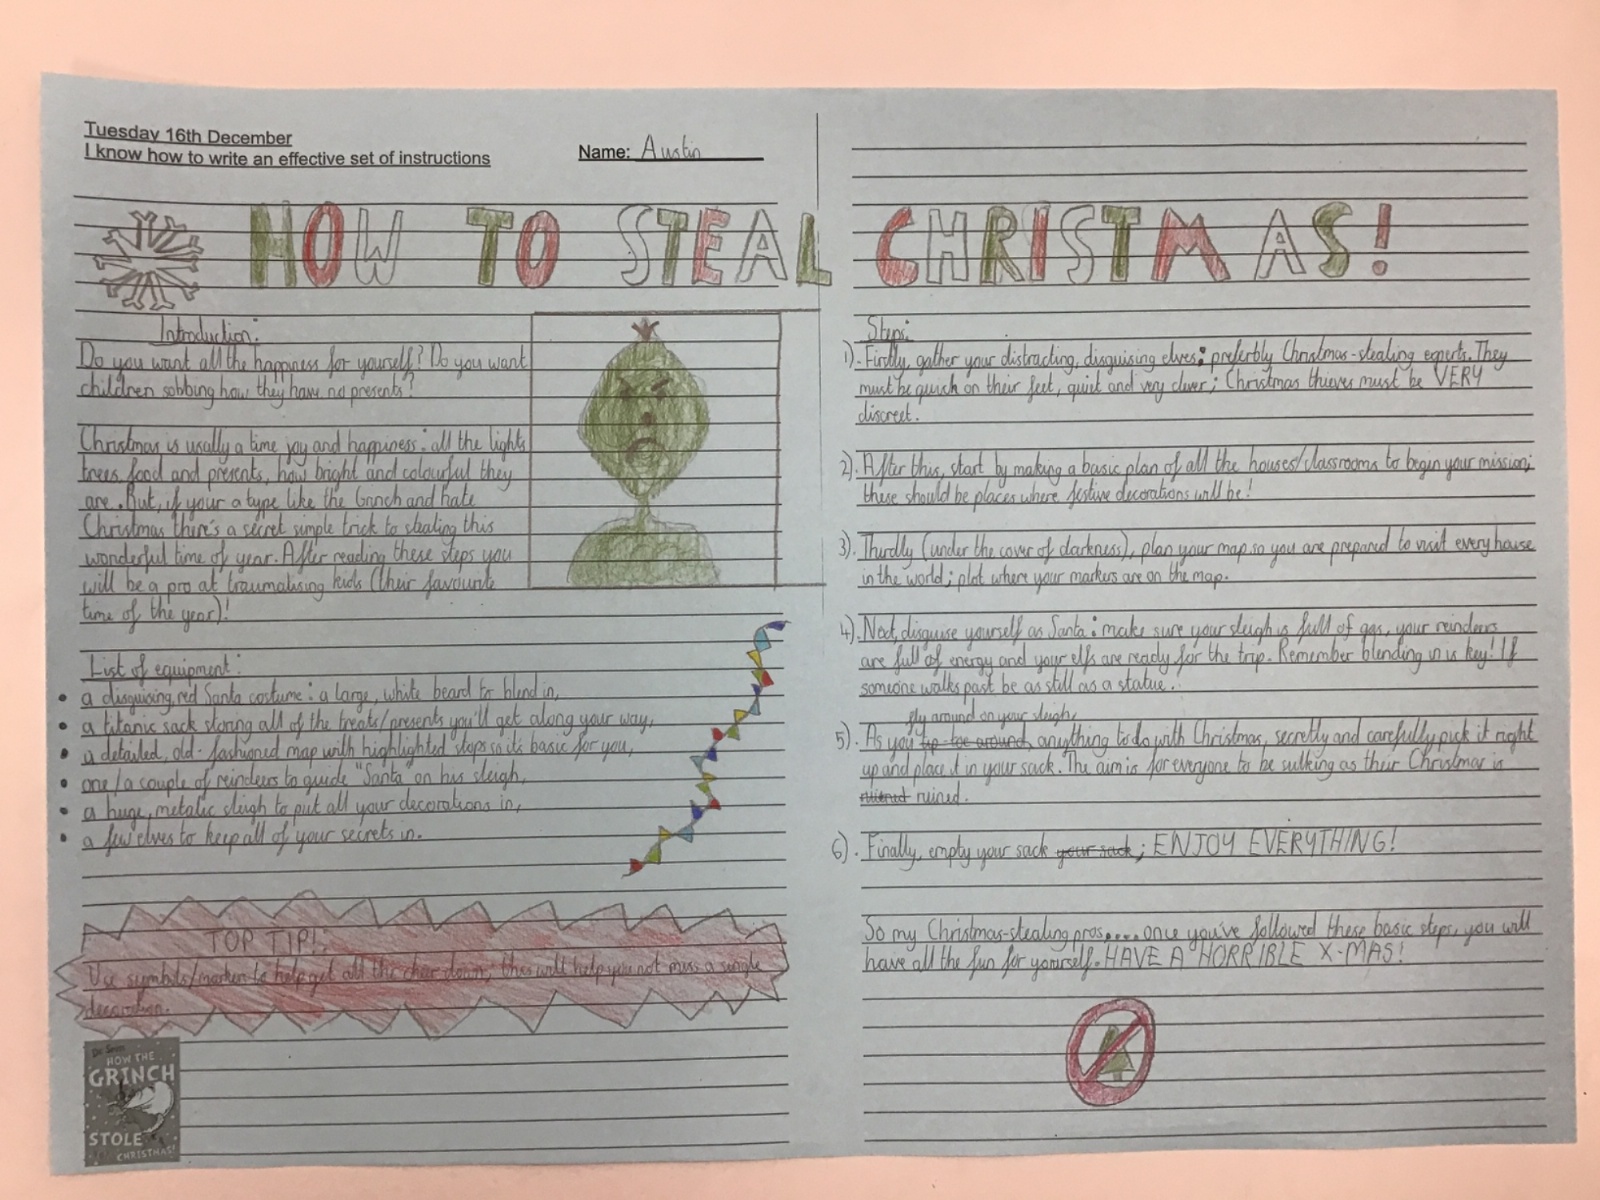 Tuesday 16th December
I know how to write an effective set of instructions
Name: Austin
HOW TO STEAL CHRISTMAS!
Introduction:
Do you want all the happiness for yourself? Do you want
children sobbing how they have no presents?
Christmas is usally a time joy and happiness: all the lights
trees, food and presents, how bright and colourful they
are. But, if your a type like the Grinch and hate
Christmas there's a secret simple trick to stealing this
wonderful time of year. After reading these steps you
will be a pro at traumatising kids (their favourite
time of the year)!
List of equipment:
• a disguising, red Santa costume: a large, white beard to blend in,
• a titanic sack storing all of the treats/presents you'll get along your way,
• a detailed, old-fashioned map with highlighted stops so its basic for you,
• one/a couple of reindeers to guide "Santa" on his sleigh,
• a huge, metalic sleigh to put all your decorations in,
• a few elves to keep all of your secrets in.
TOP TIP!:
Use symbols/markers to help get all the cheer down, this will help you not miss a single
decoration.
Dr. Seuss
HOW THE
GRINCH
STOLE
CHRISTMAS!
Steps:
1). Firstly, gather your distracting, disguising elves; prefertbly Christmas-stealing experts. They
must be quick on their feet, quiet and very clever; Christmas thieves must be VERY
discreet.
2). After this, start by making a basic plan of all the houses/classrooms to begin your mission;
these should be places where festive decorations will be!
3). Thirdly (under the cover of darkness), plan your map so you are prepared to visit every house
in the world; plot where your markers are on the map.
4). Next, disguise yourself as Santa: make sure your sleigh is full of gas, your reindeers
are full of energy and your elfs are ready for the trip. Remember blending in is key! If
someone walks past be as still as a statue.
fly around on your sleigh,
5). As you tip-toe around, anything to do with Christmas, secretly and carefully pick it right
up and place it in your sack. The aim is for everyone to be sulking as their Christmas is
ruined.
6). Finally, empty your sack your sack; ENJOY EVERYTHING!
So my Christmas-stealing pros.... once you've followed these basic steps, you will
have all the fun for yourself. HAVE A HORRIBLE X-MAS!